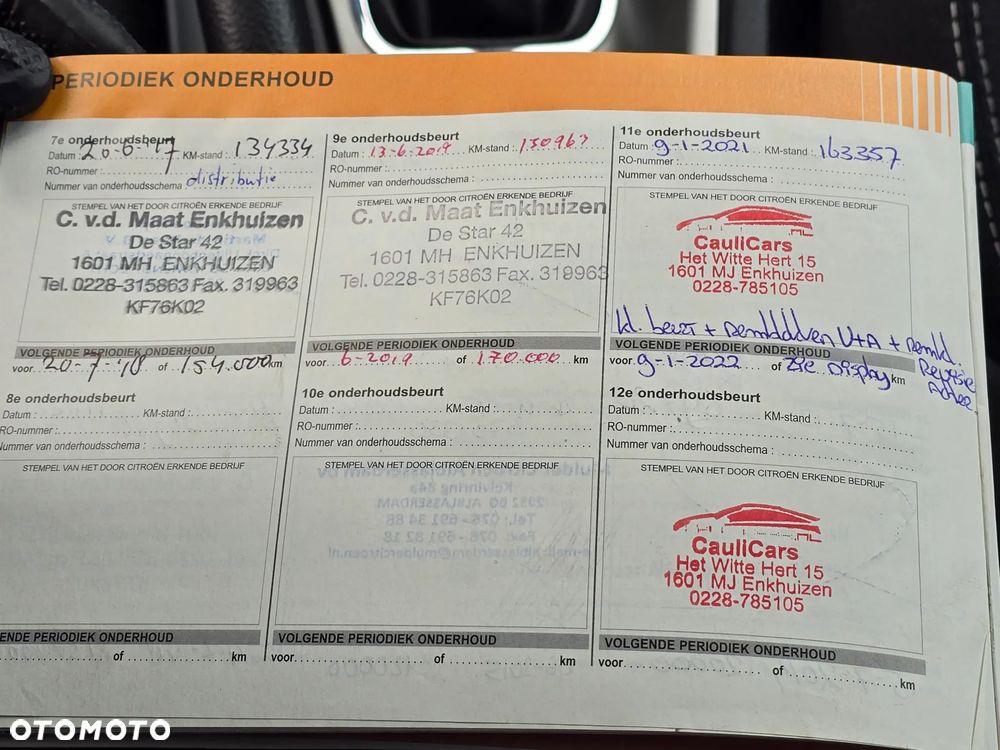 PERIODIEK ONDERHOUD
7e onderhoudsbeurt
Datum : 20-6-'17 KM-stand : 134334
RO-nummer :
Nummer van onderhoudsschema : distributie
STEMPEL VAN HET DOOR CITROËN ERKENDE BEDRIJF
C. v.d. Maat Enkhuizen
De Star 42
1601 MH ENKHUIZEN
Tel. 0228-315863 Fax. 319963
KF76K02
VOLGENDE PERIODIEK ONDERHOUD
voor 20-7-'18 of 154.000 km
8e onderhoudsbeurt
Datum : KM-stand :
RO-nummer :
Nummer van onderhoudsschema :
STEMPEL VAN HET DOOR CITROËN ERKENDE BEDRIJF
ENDE PERIODIEK ONDERHOUD
of km
9e onderhoudsbeurt
Datum : 13-6-2019 KM-stand :
RO-nummer :
Nummer van onderhoudsschema :
STEMPEL VAN HET DOOR CITROËN ERKENDE BEDRIJF
C. v.d. Maat Enkhuizen
De Star 42
1601 MH ENKHUIZEN
Tel. 0228-315863 Fax. 319963
KF76K02
VOLGENDE PERIODIEK ONDERHOUD
voor 6-2019 of 170.000 km
10e onderhoudsbeurt
Datum : KM-stand :
RO-nummer :
Nummer van onderhoudsschema :
STEMPEL VAN HET DOOR CITROËN ERKENDE BEDRIJF
VOLGENDE PERIODIEK ONDERHOUD
voor of km
11e onderhoudsbeurt
Datum : 9-1-2021 KM-stand : 163357
RO-nummer :
Nummer van onderhoudsschema :
STEMPEL VAN HET DOOR CITROËN ERKENDE BEDRIJF
CauliCars
Het Witte Hert 15
1601 MJ Enkhuizen
0228-785105
kl. beurt + V+A + remkl.
Revisie
VOLGENDE PERIODIEK ONDERHOUD
voor 9-1-2022 of Zie Display km
12e onderhoudsbeurt
Datum : KM-stand :
RO-nummer :
Nummer van onderhoudsschema :
STEMPEL VAN HET DOOR CITROËN ERKENDE BEDRIJF
CauliCars
Het Witte Hert 15
1601 MJ Enkhuizen
0228-785105
VOLGENDE PERIODIEK ONDERHOUD
voor of km
OTOMOTO